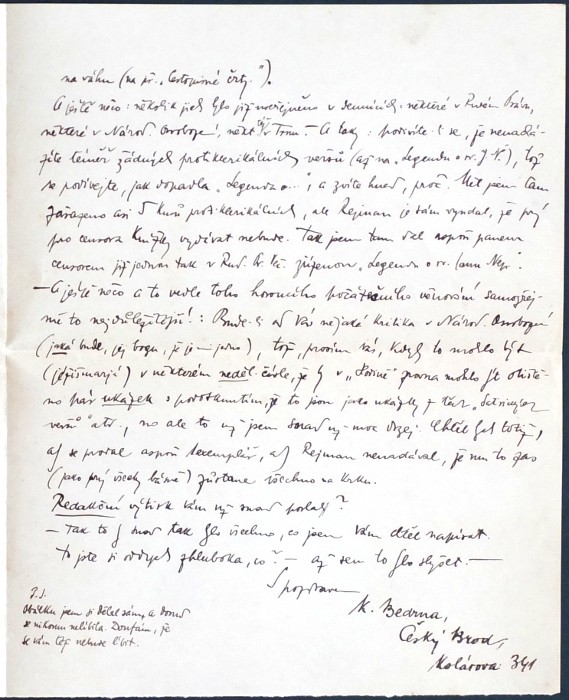 na váhu (na př. „Cestopisné črty.").
A ještě něco: několik jich bylo již uveřejněno v denících: některé v Rudém Právu,
některé v Národ. Osvobození, někt. v Trnu. – A taky: podivíte-li se, že nenachá-
zíte téměř žádných protiklerikálních veršů (až na „Legendu o sv. J. N."), tož
se podívejte, jak dopadla „Legenda o...", a zvíte hned, proč. Měl jsem tam
zařazeno asi 5 kusů protiklerikálních, ale Rejman je sám vyndal, že prý
pro censora knížky vydávat nebude. Tak jsem tam dal aspoň panem
censorem již jednou tak v Rud. zúženou „Legendu o sv. Janu Nep."
– A ještě něco a to vedle toho horoucího počátečního věnování samozřej-
mě to nejdůležitější!: Bude-li od Vás nějaká kritika v Národ. Osvobození
(jaká bude, jej bogu, je jedno), tož, prosím vás, kdyby to mohlo být
v některém neděl. čísle, že by v „ zrovna mohlo být otiště-
no pár ukázek s podotknutím, že to jsou jako ukázky z té
veršů" atd., no ale to už jsem snad už moc drzej. Chtěl bych totiž,
aby se prodal aspoň 1 exemplář, aby Rejman nenadával, že mu to zas
(jako prý všecky básně) zůstane všechno na krku.
Redakční výtisk vám už snad poslaly?
– Tak to by snad tak bylo všechno, co jsem Vám chtěl napsat.
To jste si oddych zhluboka, co? – až sem to bylo slyšet. –
S pozdravem
K. Bedrna,
Český Brod,
Kolárova 341
P.S.
Obálku jsem si dělal sám, a dosud
se nikomu nelíbila. Doufám, že
se vám též nebude líbit.